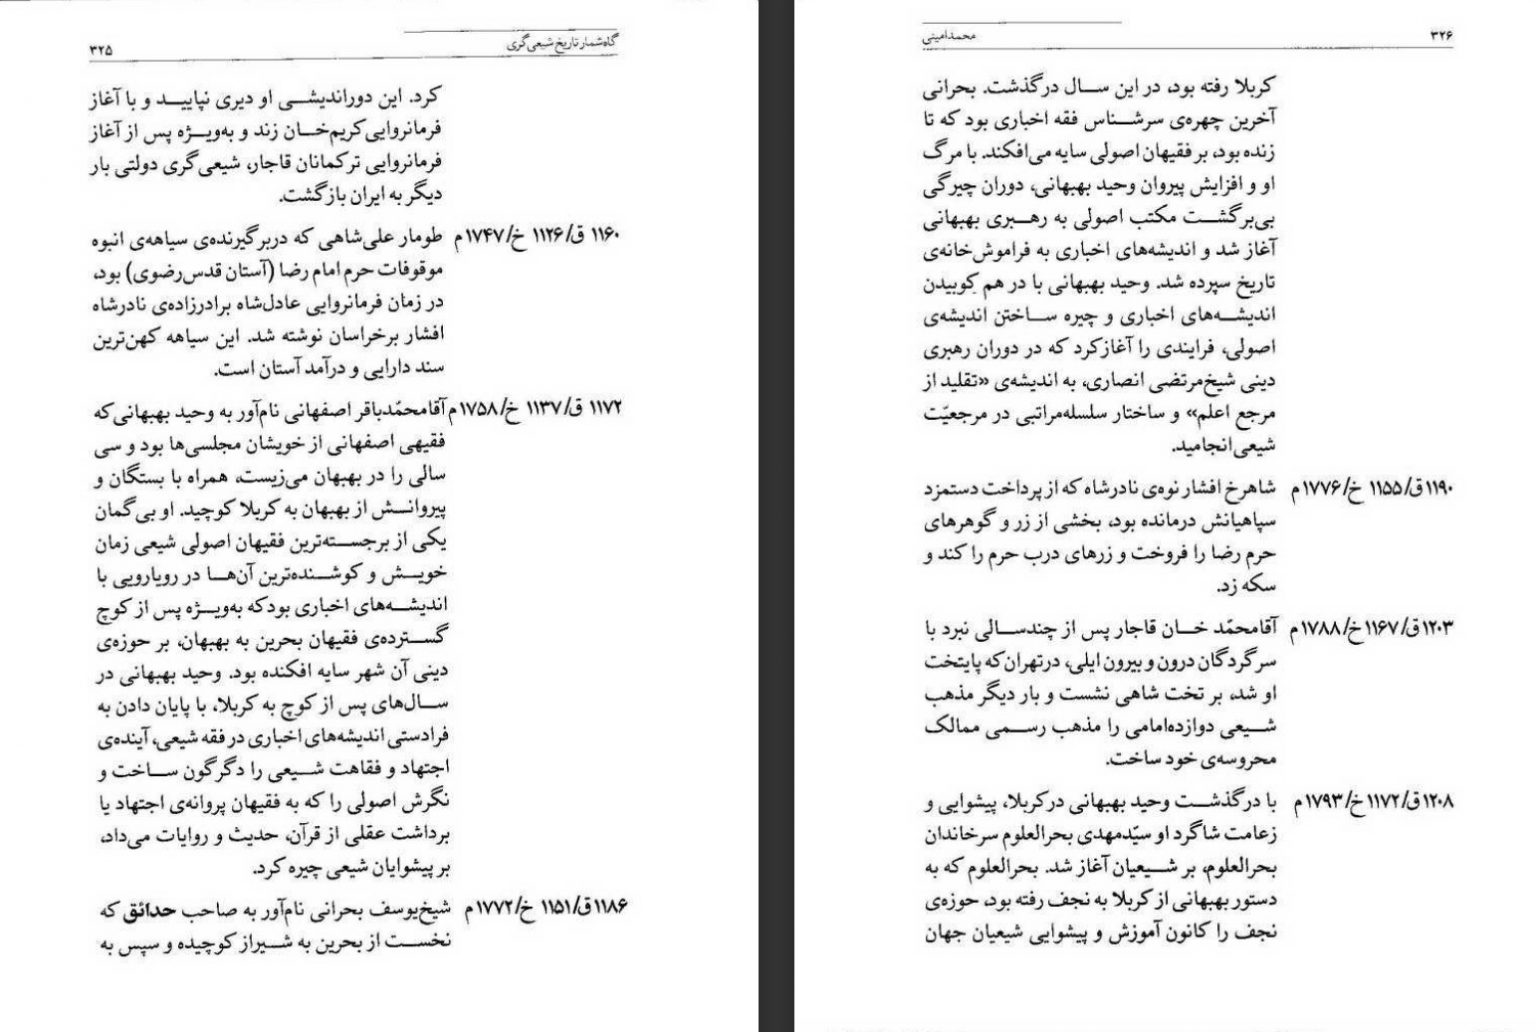 گاه‌شمار تاریخ شیعی‌گری
۳۲۵
کرد. این دوراندیشی او دیری نپایید و با آغاز
فرمانروایی کریم‌خان زند و به‌ویژه پس از آغاز
فرمانروایی ترکمانان قاجار، شیعی‌گری دولتی بار
دیگر به ایران بازگشت.
۱۱۶۰ ق/۱۱۲۶ خ/۱۷۴۷م طومار علی‌شاهی که دربرگیرنده‌ی سیاهه‌ی انبوه
موقوفات حرم امام رضا (آستان قدس‌رضوی) بود،
در زمان فرمانروایی عادل‌شاه برادرزاده‌ی نادرشاه
افشار برخراسان نوشته شد. این سیاهه کهن‌ترین
سند دارایی و درآمد آستان است.
۱۱۷۲ ق/۱۱۳۷ خ/۱۷۵۸م آقامحمّدباقر اصفهانی نام‌آور به وحید بهبهانی‌که
فقیهی اصفهانی از خویشان مجلسی‌ها بود و سی
سالی را در بهبهان می‌زیست، همراه با بستگان و
پیروانش از بهبهان به کربلا کوچید. او بی‌گمان
یکی از برجسته‌ترین فقیهان اصولی شیعی زمان
خویش و کوشنده‌ترین آن‌ها در رویارویی با
اندیشه‌های اخباری بودکه به‌ویژه پس از کوچ
گسترده‌ی فقیهان بحرین به بهبهان، بر حوزه‌ی
دینی آن شهر سایه افکنده بود. وحید بهبهانی در
سال‌های پس از کوچ به کربلا، با پایان دادن به
فرادستی اندیشه‌های اخباری در فقه شیعی، آینده‌ی
اجتهاد و فقاهت شیعی را دگرگون ساخت و
نگرش اصولی را که به فقیهان پروانه‌ی اجتهاد یا
برداشت عقلی از قرآن، حدیث و روایات می‌داد،
بر پیشوایان شیعی چیره کرد.
۱۱۸۶ق/۱۱۵۱ خ/۱۷۷۲م شیخ‌یوسف بحرانی نام‌آور به صاحب حدائق که
نخست از بحرین به شیراز کوچیده و سپس به
۳۲۶
محمدامینی
کربلا رفته بود، در این سال درگذشت. بحرانی
آخرین چهره‌ی سرشناس فقه اخباری بود که تا
زنده بود، بر فقیهان اصولی سایه می‌افکند. با مرگ
او و افزایش پیروان وحید بهبهانی، دوران چیرگی
بی‌برگشت مکتب اصولی به رهبری بهبهانی
آغاز شد و اندیشه‌های اخباری به فراموش‌خانه‌ی
تاریخ سپرده شد. وحید بهبهانی با در هم کِوبیدن
اندیشه‌های اخباری و چیره ساختن اندیشه‌ی
اصولی، فرایندی را آغازکرد که در دوران رهبری
دینی شیخ‌مرتضی انصاری، به اندیشه‌ی «تقلید از
مرجع اعلم» و ساختار سلسله‌مراتبی در مرجعیّت
شیعی‌انجامید.
۱۱۹۰ق/۱۱۵۵ خ/۱۷۷۶م شاهرخ افشار نوه‌ی نادرشاه که از پرداخت دستمزد
سپاهیانش درمانده بود، بخشی از زر و گوهرهای
حرم رضا را فروخت و زرهای درب حرم را کند و
سکه زد.
۱۲۰۳ق/۱۱۶۷خ/۱۷۸۸م آقامحمّد خان قاجار پس از چندسالی نبرد با
سرگردگان درون و بیرون ایلی، درتهران‌که پایتخت
او شد، بر تخت شاهی نشست و بار دیگر مذهب
شیعی دوازده‌امامی را مذهب رسمی ممالک
محروسه‌ی خود ساخت.
۱۲۰۸ق/۱۱۷۲ خ/۱۷۹۳م با درگذشت وحید بهبهانی درکربلا، پیشوایی و
زعامت شاگرد او سیّدمهدی بحرالعلوم سرخاندان
بحرالعلوم، بر شیعیان آغاز شد. بحرالعلوم که به
دستور بهبهانی از کربلا به نجف رفته بود، حوزه‌ی
نجف را کانون آموزش و پیشوایی شیعیان جهان